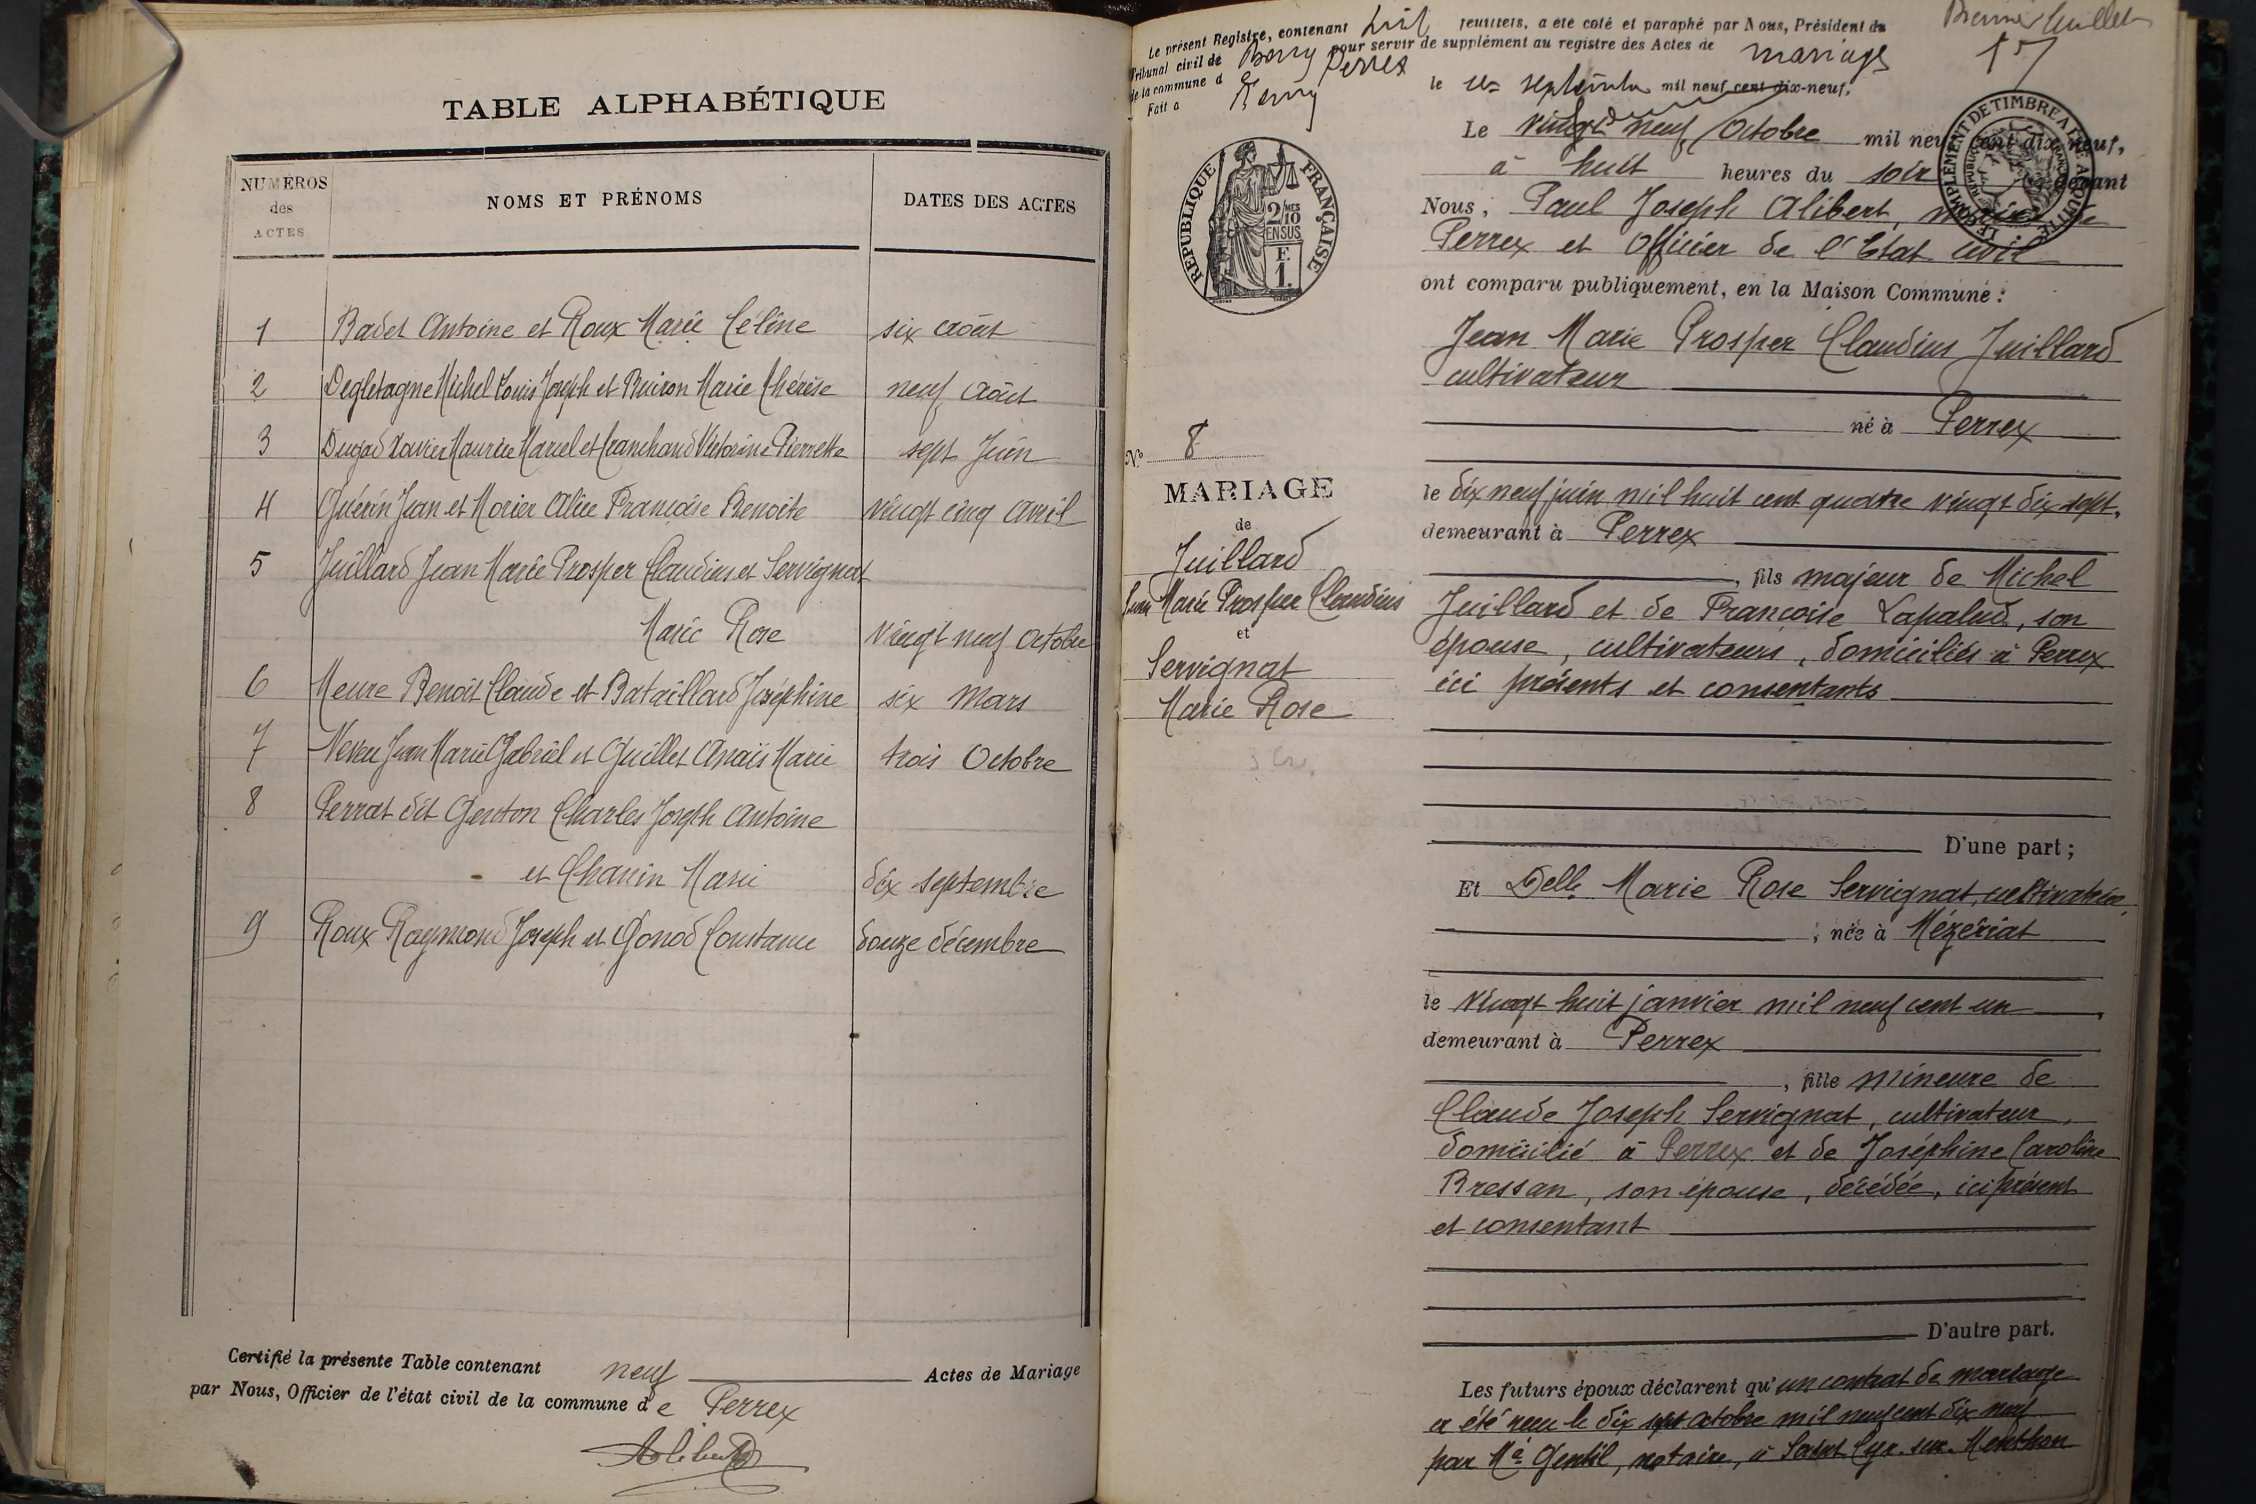 TABLE ALPHABÉTIQUE
NUMÉROS
des
ACTES
NOMS ET PRÉNOMS
DATES DES ACTES
1 Badet Antoine et Roux Marie Céline six août
2 Degletagne Michel Louis Joseph et Buiron Marie Thérèse neuf août
3 Dugad Xavier Maurice Marcel et Franchand Victorine Pierrette sept Juin
4 Guérin Jean et Morier Alice Françoise Benoite vingt cinq avril
5 Juillard Jean Marie Prosper Claudius et Servignat
Marie Rose vingt neuf Octobre
6 Meure Benoit Claude et Bataillard Joséphine six Mars
7 Neveu Jean Marie Gabriel et Guillet Anaïs Marie trois Octobre
8 Perrat dit Genton Charles Joseph Antoine
et Chanin Marie dix septembre
9 Roux Raymond Joseph et Gonod Constance douze décembre
Certifié la présente Table contenant neuf Actes de Mariage
par Nous, Officier de l'état civil de la commune de Perrex
Premier feuillet
Le présent Registre, contenant huit feuillets, a été coté et paraphé par Nous, Président du
Tribunal civil de Bourg pour servir de supplément au registre des Actes de mariage
de la commune d Perrex
Fait a Bourg le 1er septembre mil neuf cent dix-neuf.
RÉPUBLIQUE FRANÇAISE
2/10
MES
EN SUS
F.
1.
COMPLÉMENT DE TIMBRE A
N° 8
MARIAGE
de
Juillard
Jean Marie Prosper Claudius
et
Servignat
Marie Rose
Le vingt neuf Octobre mil neuf cent dix-neuf,
à huit heures du soir devant
Nous, Paul Joseph Alibert, maire de
Perrex et Officier de l'Etat civil
ont comparu publiquement, en la Maison Commune :
Jean Marie Prosper Claudius Juillard
cultivateur
né à Perrex
le dix neuf juin mil huit cent quatre vingt dix sept,
demeurant à Perrex
, fils majeur de Michel
Juillard et de Françoise Lapalud, son
épouse, cultivateurs, domiciliés à Perrex
ici présents et consentants
D'une part ;
Et Delle Marie Rose Servignat, cultivatrice,
, née à Mézériat
le vingt huit janvier mil neuf cent un
demeurant à Perrex
, fille mineure de
Claude Joseph Servignat, cultivateur,
domicilié à Perrex et de Joséphine Caroline
Bressan, son épouse, décédée, ici présent
et consentant
D'autre part.
Les futurs époux déclarent qu'un contrat de mariage
a été reçu le dix sept octobre mil neuf cent dix neuf
par Me Gentil, notaire, à Saint Cyr-sur-Menthon